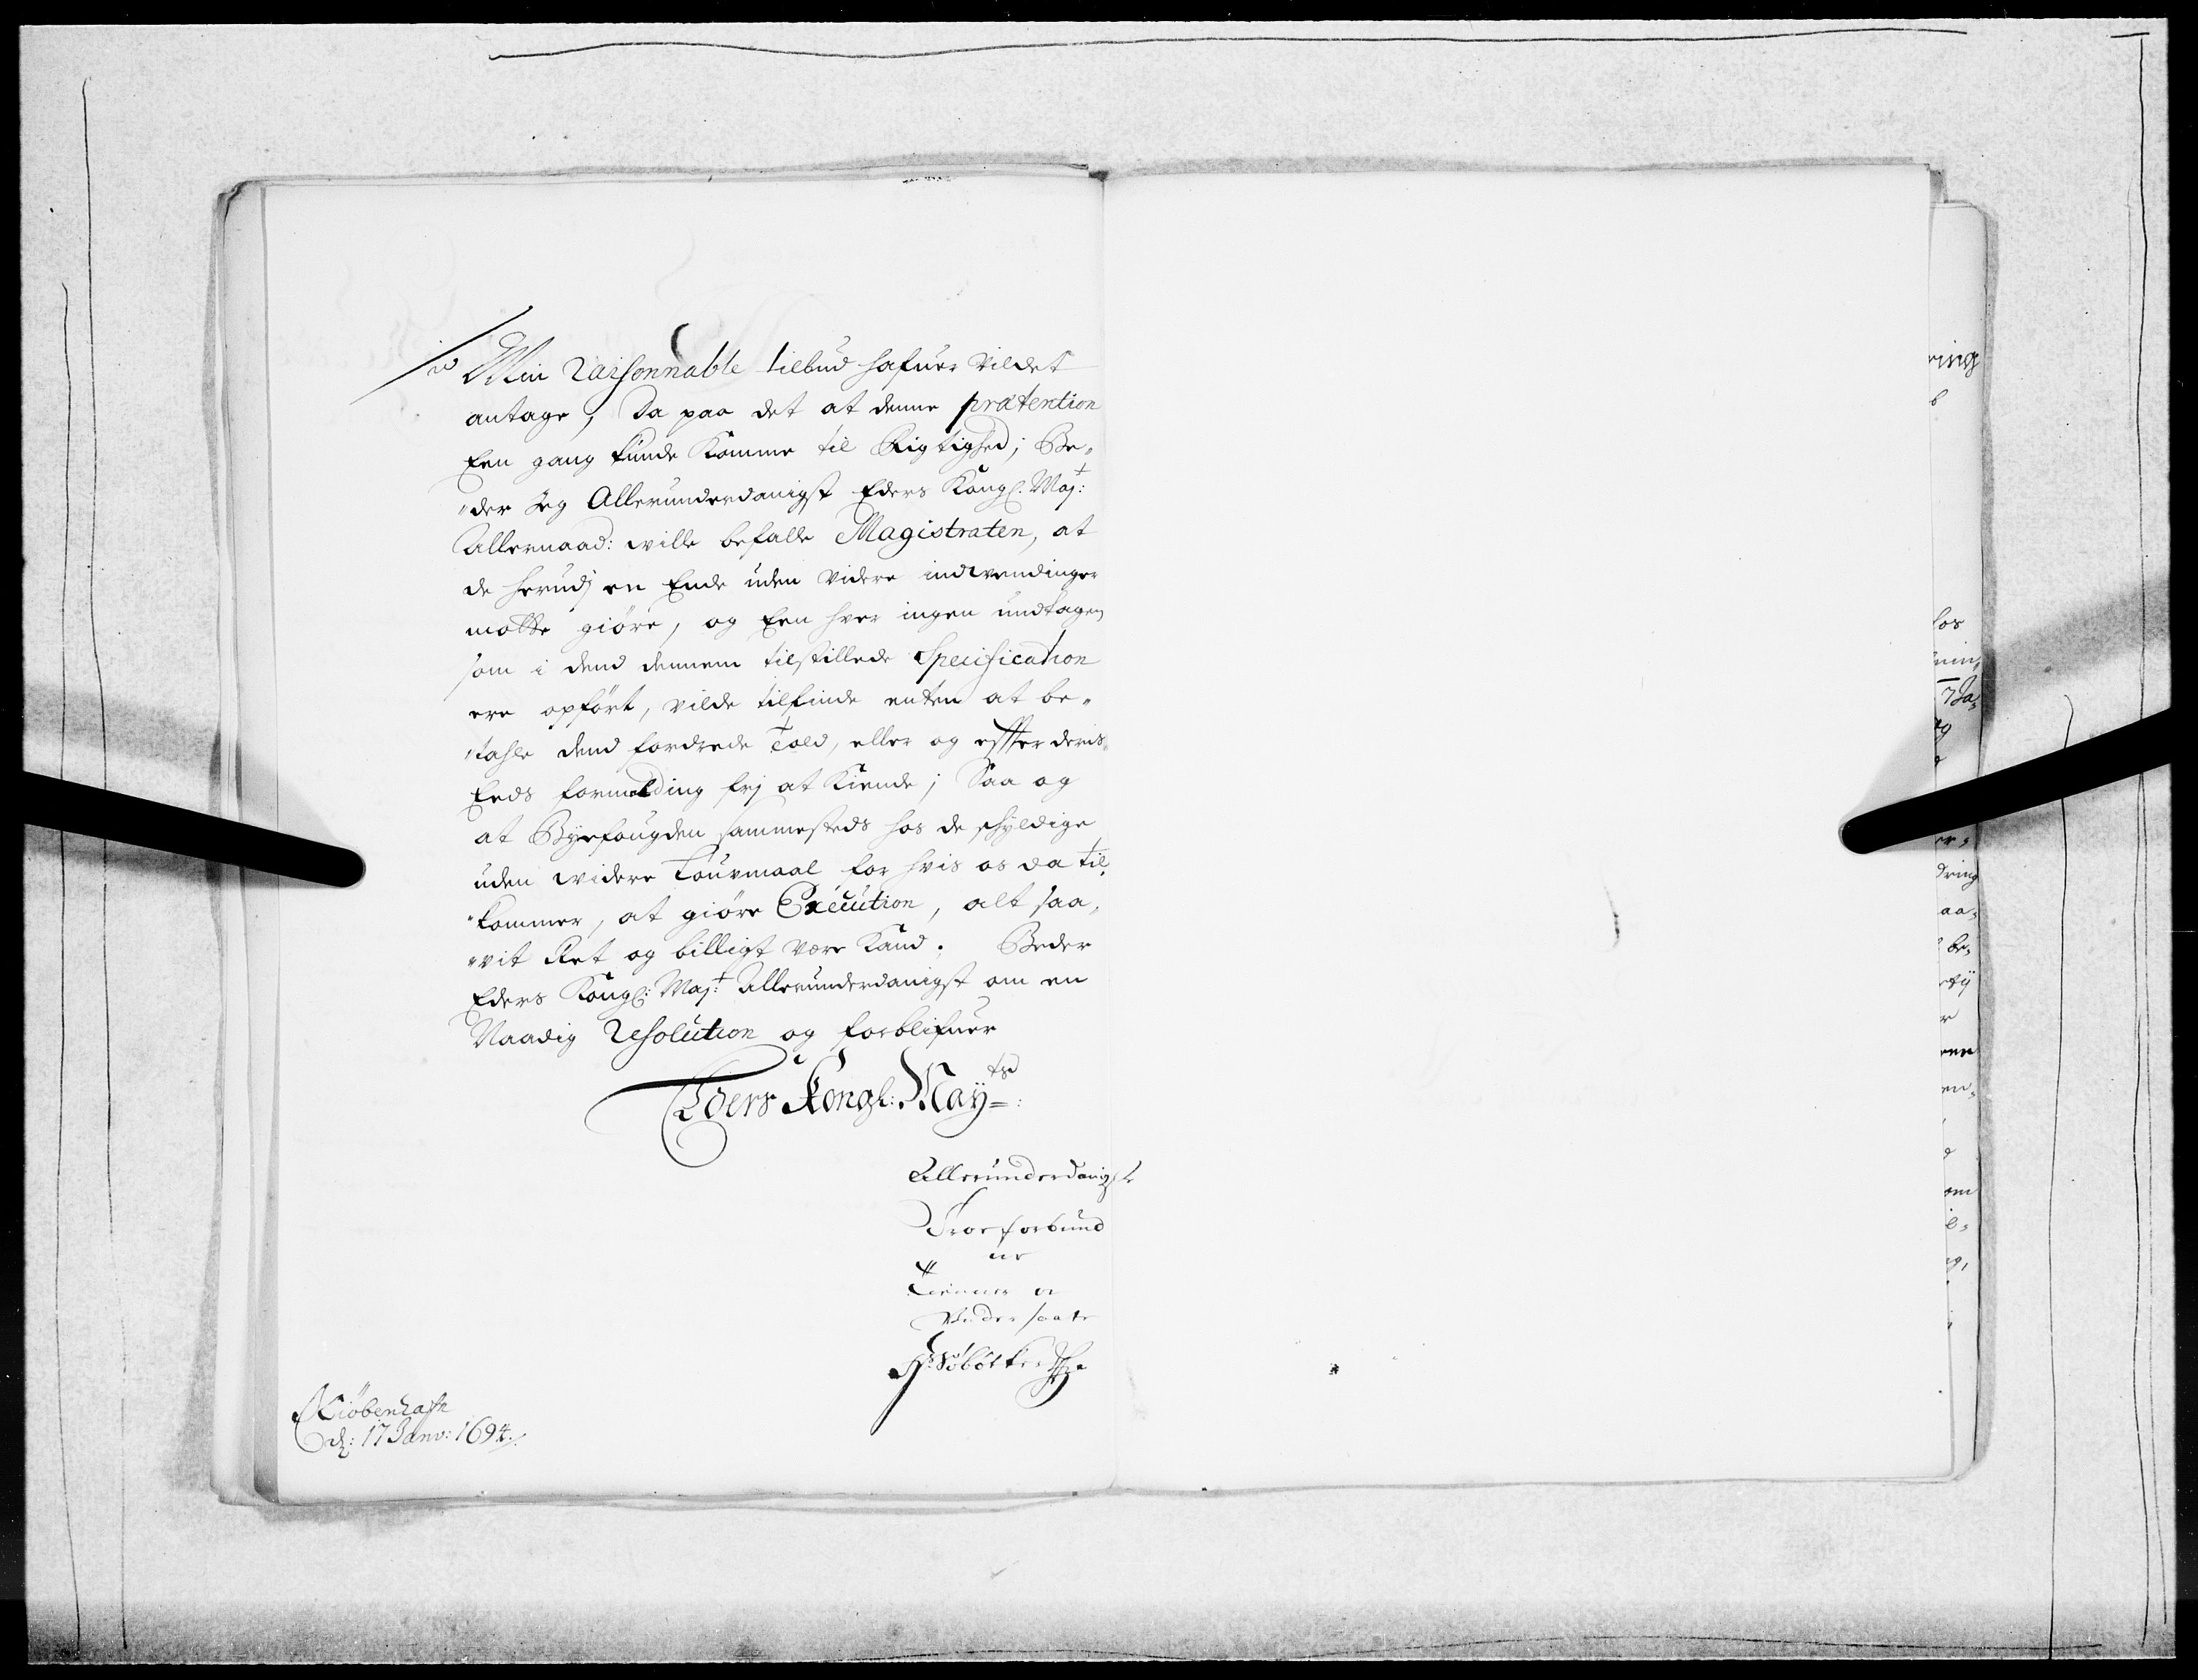 Min raisonnable tilbud hafuer vildet
antage, Da paa det at denne prætention
Een gang kunde komme til Rigtighed; Be„
„der Jeg Allerunderdanigst Eders Kongl. Maj:t
Allernaad: wille befalle Magistraten, at
de herudj en Ende uden videre indvendinger
motte giøre, og Een hver ingen undtagen
som i dend dennem tilstillede Specification
ere opført, vilde tilfinde enten at be„
„tahle dend fordrede Told, eller og effter deris
Eeds formelding frj at Kiende; Saa og
at Byefougden sammesteds hos de skyldige
uden widere Lougmaal for hvis os da til„
„kommer, at giøre Execution, alt saa„
„vit Ret og billigt være Kand. Beder
Eders Kongl: Maj:t Allerunderdanigst om en
Naadig Resolution og forblifuer
Eders Kongl: May:tz
Allerunderdanigste
Troe forbund
ne
Tienner oc
Undersaatte
H: Søbøtker
Kiöbenhafn
d: 17 Janv: 1694.
ring
b
for
7 Ja„
dring
aa„
be„
en„
om